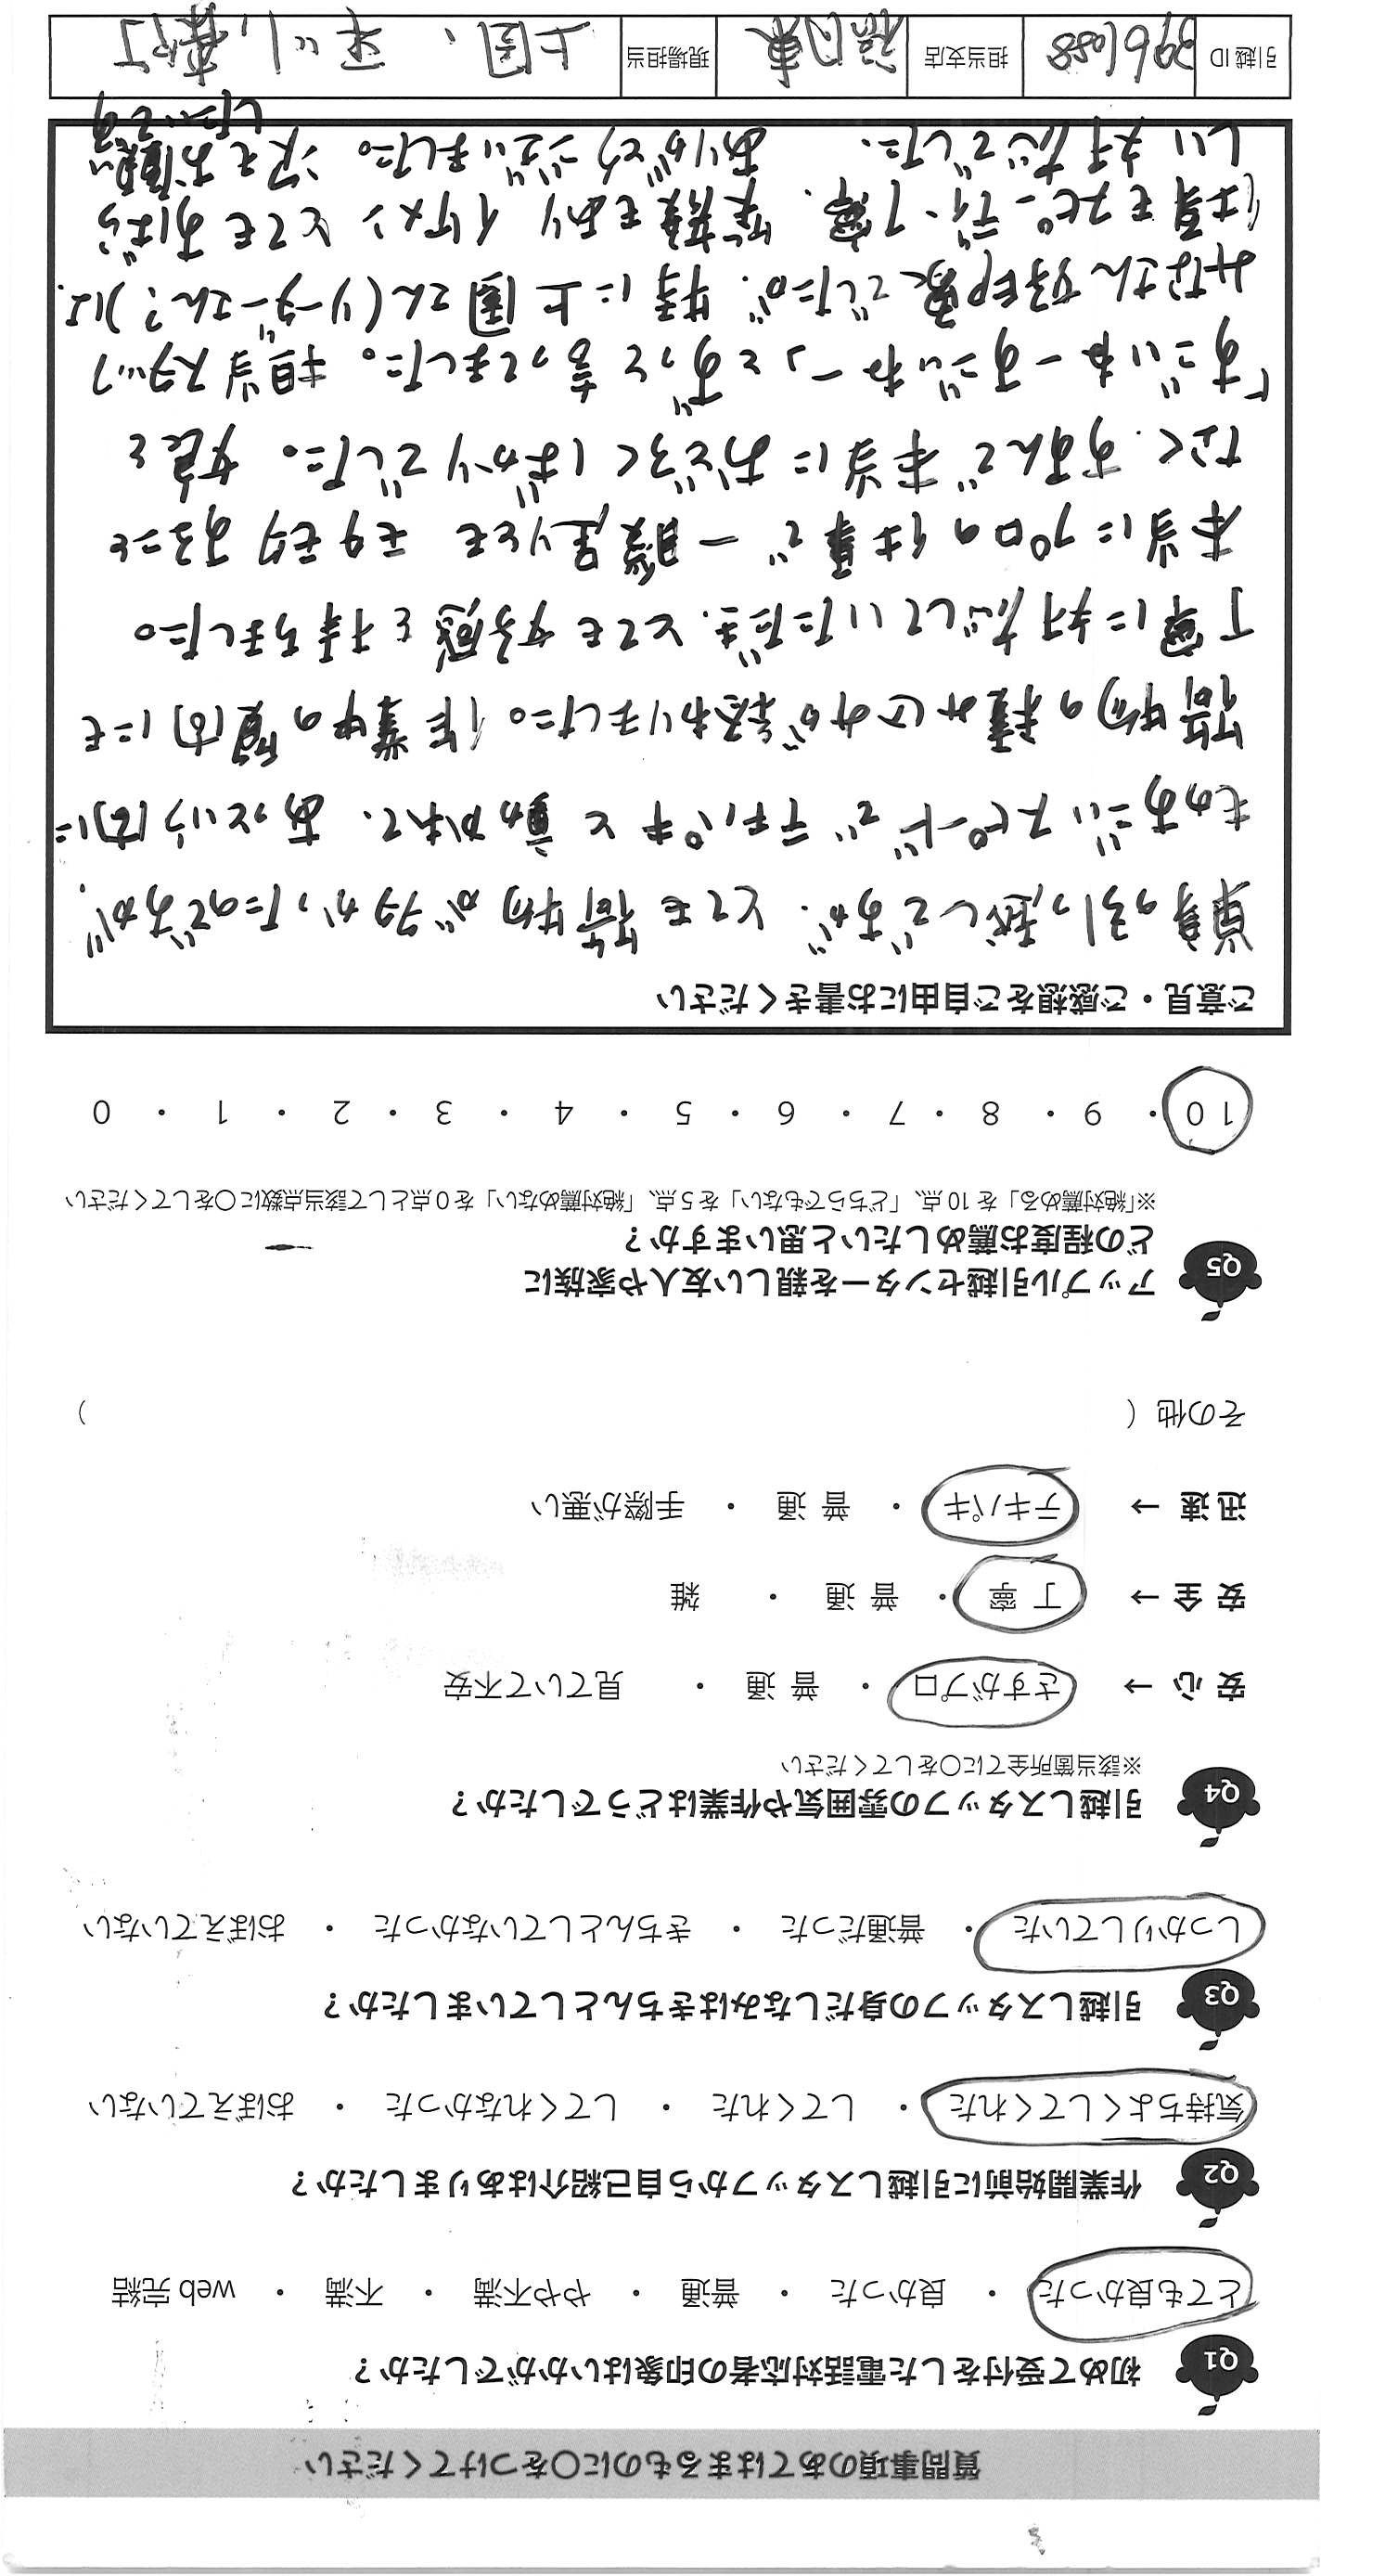 質問事項のあてはまるものに○をつけてください
Q1 初めて受付をした電話対応者の印象はいかがでしたか？
とても良かった ・ 良かった ・ 普通 ・ やや不満 ・ 不満 ・ web 完結
Q2 作業開始前に引越しスタッフから自己紹介はありましたか？
気持ちよくしてくれた ・ してくれた ・ してくれなかった ・ おぼえていない
Q3 引越しスタッフの身だしなみはきちんとしていましたか？
しっかりしていた ・ 普通だった ・ きちんとしていなかった ・ おぼえていない
Q4 引越しスタッフの雰囲気や作業はどうでしたか？
※該当箇所全てに○をしてください
安 心 → さすがプロ ・ 普 通 ・ 見ていて不安
安 全 → 丁 寧 ・ 普 通 ・ 雑
迅 速 → テキパキ ・ 普 通 ・ 手際が悪い
その他（ ）
Q5 アップル引越センターを親しい友人や家族に
どの程度お薦めしたいと思いますか？
※「絶対薦める」を 10 点、「どちらでもない」を 5 点、「絶対薦めない」を 0 点として該当点数に○をしてください
10 ・ 9 ・ 8 ・ 7 ・ 6 ・ 5 ・ 4 ・ 3 ・ 2 ・ 1 ・ 0
ご意見・ご感想をご自由にお書きください
単身の引っ越しですが、とても荷物が多かったのですが、
ものすごいスピードでテキパキと動かれて、あっという間に
荷物の積み込みが終わりました。作業中の質問にも
丁寧に対応していただき、とても好感を持ちました。
本当にプロの仕事で 一瞬足りともモタモタすること
なく、すすんで本当におどろくばかりでした。女房と
「すごいねーすごいねー」とずっと言ってました。担当スタッフ
みなさん好印象でしたが、特に上園さん(リーダーさん?)は、
仕事もスピーディ、丁寧、笑顔もあり イケメン とてもすばら
しい対応でした、 ありがとうございました。次もお願い
したいです
引越 ID 3961088 担当支店 福岡東 現場担当 上園、平川、森竹